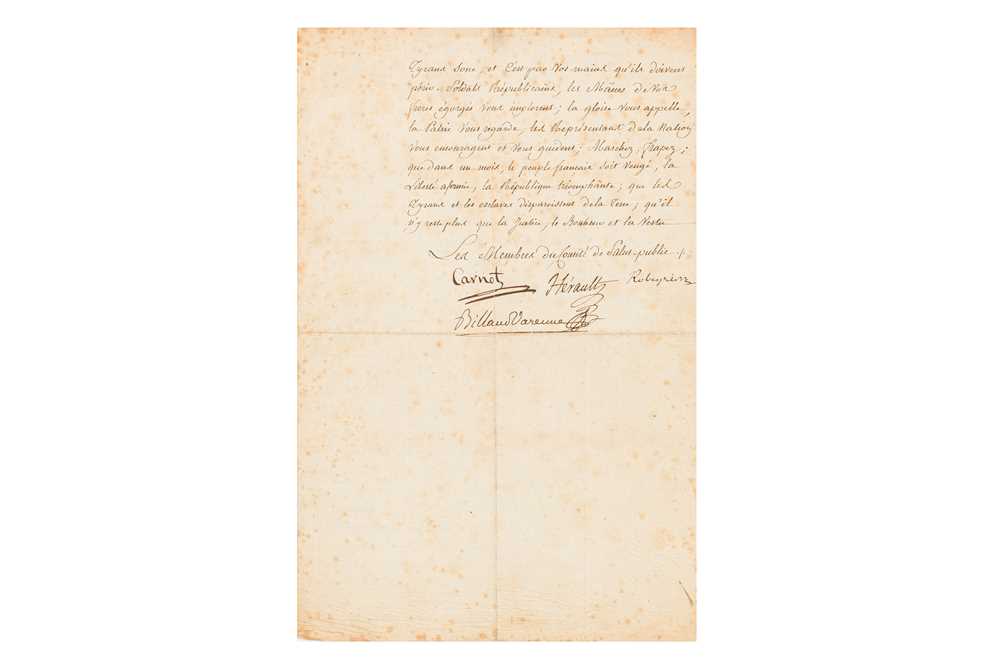 Tyrans sont, et C'est par Vos mains qu'ils doivent
périr. Soldats Républicains, les Mânes de Vos
freres égorgés Vous implorent; la gloire Vous appelle,
la Patrie Vous regarde, les Représentans de la Nation
Vous encouragent et Vous guident; Marchez, frapez;
que dans un mois, le peuple francais soit Vengé, la
Liberté afermie, la République triomphante; que les
Tyrans et les esclaves disparoissent de la Terre; qu'il
n'y reste plus que la Justice, le Bonheur et la Vertu
Les Membres du Comité de Salut-public
Carnot Hérault Robespierre
Billaud Varenne